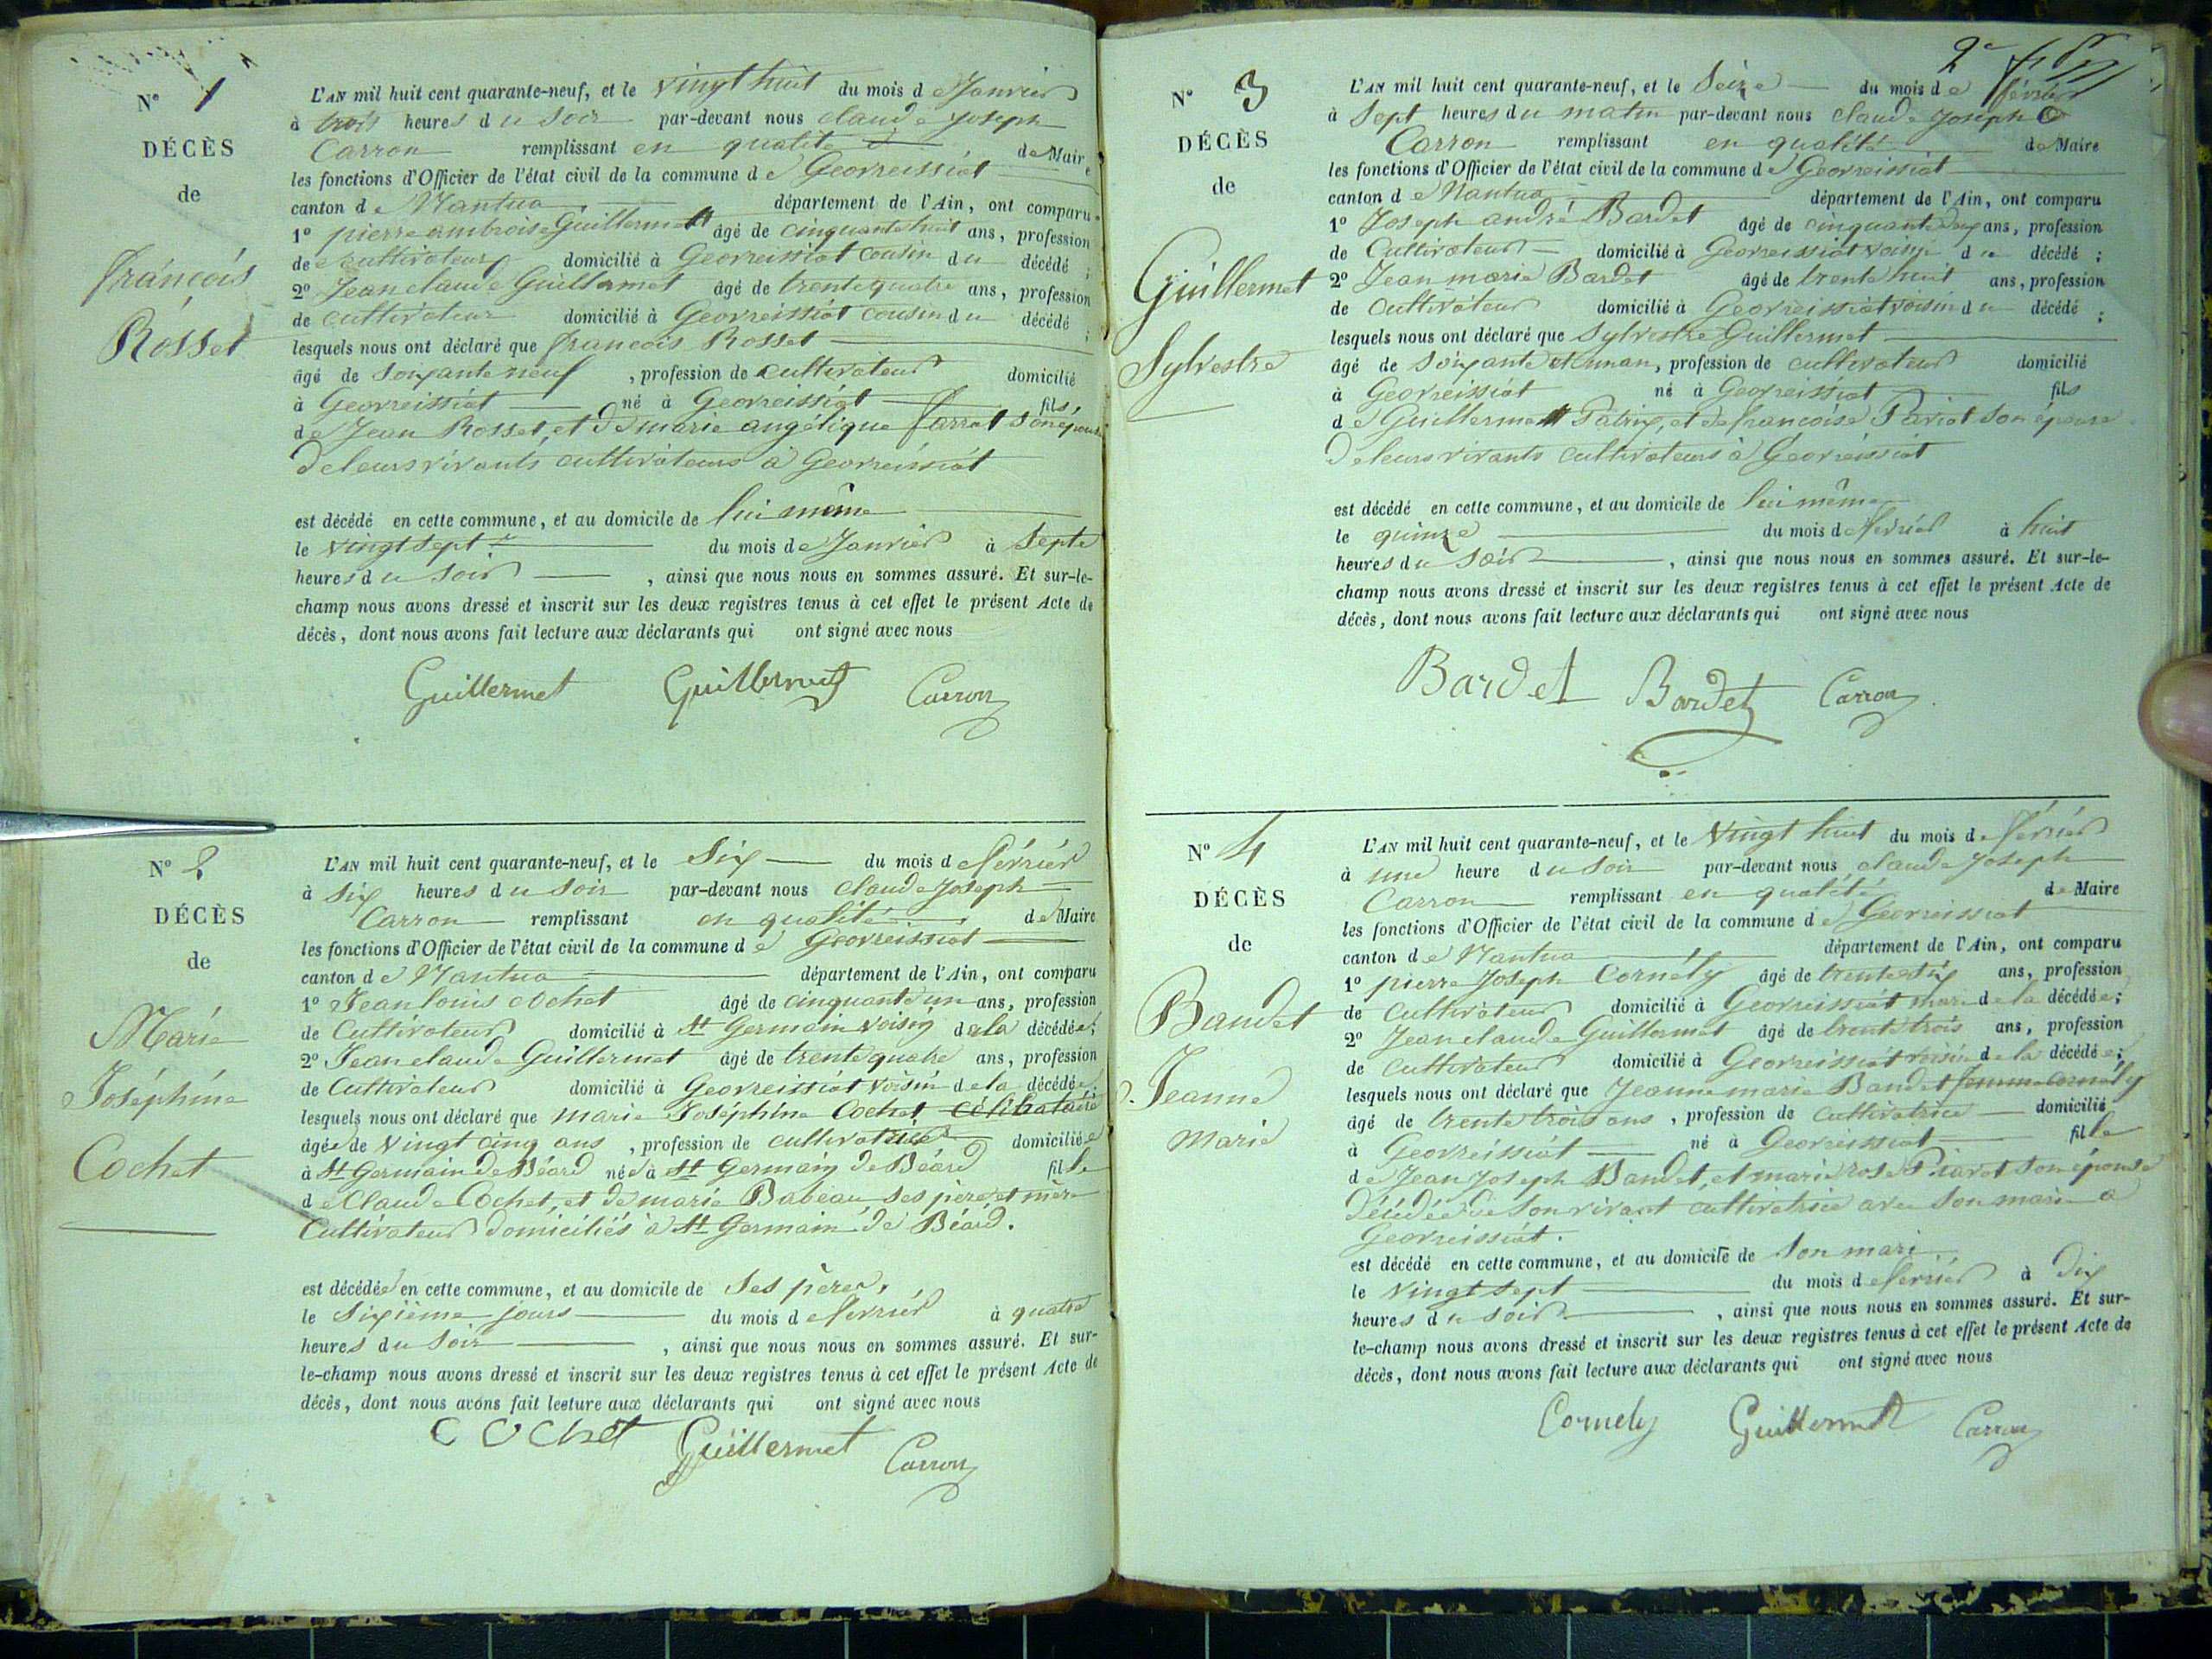 N° 1
DÉCÈS
de
françois
Rosset
L'AN mil huit cent quarante-neuf, et le vingt huit du mois de Janvier
à trois heures du soir par-devant nous claude joseph
Carron remplissant en qualité de Maire
les fonctions d'Officier de l'état civil de la commune de Geovreissiat
canton de Nantua département de l'Ain, ont comparu
1° pierre ambroise Guillermet âgé de cinquante huit ans, profession
de cultivateur domicilié à Geovreissiat cousin du décédé ;
2° Jean claude Guillermet âgé de trente quatre ans, profession
de cultivateur domicilié à Geovreissiat cousin du décédé ;
lesquels nous ont déclaré que françois Rosset
âgé de soixante neuf , profession de cultivateur domicilié
à Geovreissiat né à Geovreissiat fils
de Jean Rosset, et de marie angélique farrat son épouse
de leurs vivants cultivateurs à Geovreissiat
est décédé en cette commune, et au domicile de lui même
le vingt sept du mois de Janvier à Septe
heures du soir , ainsi que nous nous en sommes assuré. Et sur-le-
champ nous avons dressé et inscrit sur les deux registres tenus à cet effet le présent Acte de
décès, dont nous avons fait lecture aux déclarants qui ont signé avec nous
Guillermet Guillermet Carron
N° 2
DÉCÈS
de
Marie
Joséphine
Cochet
L'AN mil huit cent quarante-neuf, et le Six du mois de février
à six heures du soir par-devant nous claude joseph
Carron remplissant en qualité de Maire
les fonctions d'Officier de l'état civil de la commune de Geovreissiat
canton de Nantua département de l'Ain, ont comparu
1° Jean louis cochet âgé de cinquante un ans, profession
de Cultivateur domicilié à St Germain voisin de la décédée ;
2° Jean claude Guillermet âgé de trente quatre ans, profession
de Cultivateur domicilié à Geovreissiat voisin de la décédée
lesquels nous ont déclaré que marie Joséphine Cochet célibataire
âgée de vingt cinq ans , profession de cultivatrice domiciliée
à St Germain de Béard née à St Germain de Béard fille
de Claude Cochet, et de marie Babeau ses père et mère
Cultivateur domiciliés à St Germain de Béard.
est décédée en cette commune, et au domicile de ses pères,
le Sixième jours du mois de février à quatre
heures du soir , ainsi que nous nous en sommes assuré. Et sur-
le-champ nous avons dressé et inscrit sur les deux registres tenus à cet effet le présent Acte de
décès, dont nous avons fait lecture aux déclarants qui ont signé avec nous
COChet Guillermet Carron
2e
N° 3
DÉCÈS
de
Guillermet
Sylvestre
L'AN mil huit cent quarante-neuf, et le Seize du mois de février
à Sept heures du matin par-devant nous claude joseph
Carron remplissant en qualité de Maire
les fonctions d'Officier de l'état civil de la commune de Geovreissiat
canton de Nantua département de l'Ain, ont comparu
1° Joseph andré Bardet âgé de cinquante deux ans, profession
de Cultivateur domicilié à Geovreissiat voisin du décédé ;
2° Jean marie Bardet âgé de trente huit ans, profession
de cultivateur domicilié à Geovreissiat voisin du décédé ;
lesquels nous ont déclaré que Sylvestre Guillermet
âgé de soixante et un an, profession de cultivateur domicilié
à Geovreissiat né à Geovreissiat fils
de Guillermet Patrix, et de françoise Pariat son épouse
de leurs vivants cultivateurs à Géovreissiat
est décédé en cette commune, et au domicile de lui même
le quinze du mois de février à huit
heures du soir , ainsi que nous nous en sommes assuré. Et sur-le-
champ nous avons dressé et inscrit sur les deux registres tenus à cet effet le présent Acte de
décès, dont nous avons fait lecture aux déclarants qui ont signé avec nous
Bardet Bardet Carron
N° 4
DÉCÈS
de
Baudet
Jeanne
marie
L'AN mil huit cent quarante-neuf, et le vingt huit du mois de février
à une heure du soir par-devant nous claude joseph
Carron remplissant en qualité de Maire
les fonctions d'Officier de l'état civil de la commune de Geovreissiat
canton de Nantua département de l'Ain, ont comparu
1° pierre Joseph Cornély âgé de trente six ans, profession
de cultivateur domicilié à Geovreissiat mari de la décédée ;
2° Jean claude Guillermet âgé de trente trois ans, profession
de cultivateur domicilié à Geovreissiat voisin de la décédée ;
lesquels nous ont déclaré que Jeanne marie Baudet femme cornély
âgé de trente trois ans , profession de cultivatrice domicilié
à Geovreissiat né à Geovreissiat fille
de Jean Joseph Baudet, et marie rose Piarot son épouse
décédée de son vivant cultivatrice avec son mari à
Geovreissiat.
est décédé en cette commune, et au domicile de son mari
le vingt sept du mois de février à dix
heures du soir , ainsi que nous nous en sommes assuré. Et sur-
le-champ nous avons dressé et inscrit sur les deux registres tenus à cet effet le présent Acte de
décès, dont nous avons fait lecture aux déclarants qui ont signé avec nous
Cornely Guillermet Carron